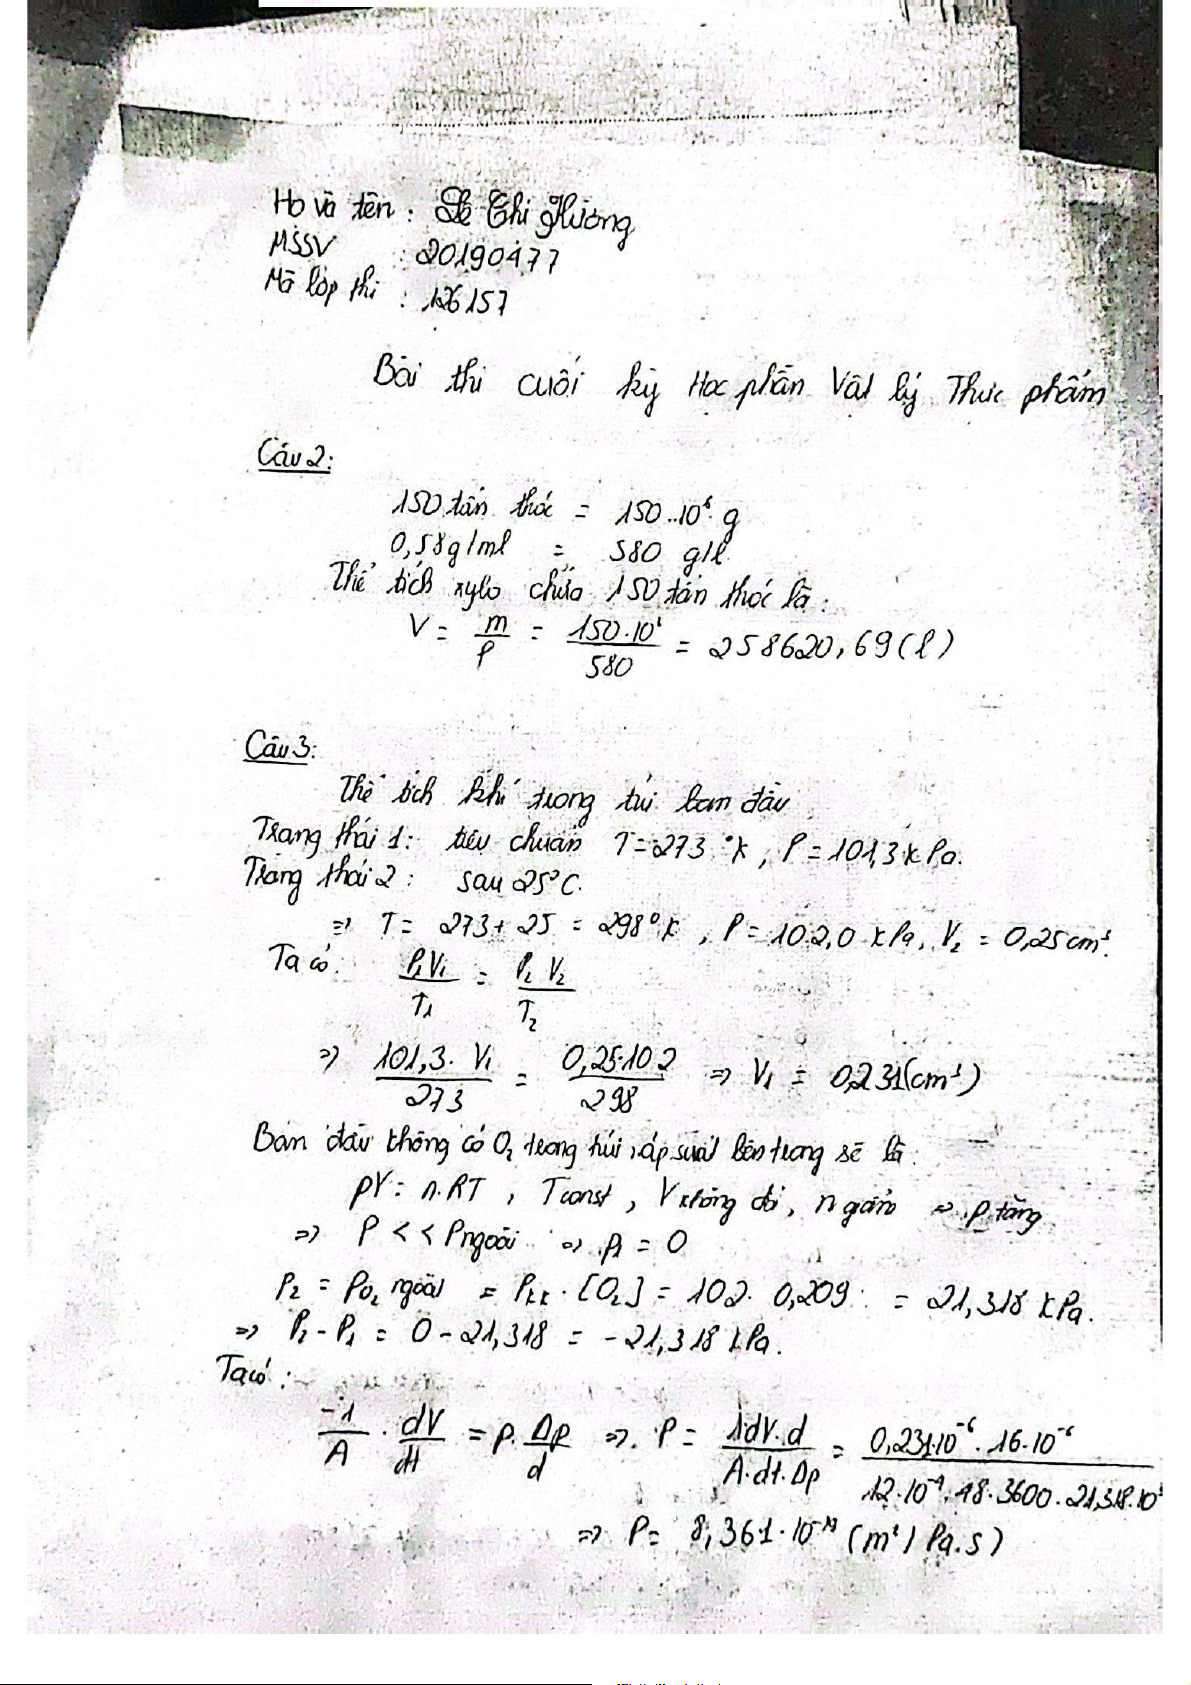 Họ và tên : Lê Thị Hương
MSSV : 20190477
Mã lớp thi : 126157
Bài thi cuối kỳ Học phần Vật lý Thực phẩm
Câu 2:
150 tấn thóc = 150.10⁶ g
0,58g/ml = 580 g/l
Thể tích xylo chứa 150 tấn thóc là :
V = m/ρ = 150.10⁶/580 = 258620,69 (l)
Câu 3:
Thể tích khí trong túi ban đầu
Trạng thái 1: tiêu chuẩn T = 273 °K, P = 101,3 kPa.
Trạng thái 2 : sau 25°C.
=> T = 273 + 25 = 298°K, P = 102,0 kPa, V₂ = 0,25cm³.
Ta có: P₁V₁/T₁ = P₂V₂/T₂
=> 101,3. V₁/273 = 0,25.102/298 => V₁ = 0,231(cm³)
Ban đầu không có O₂ trong túi, áp suất bên trong sẽ là:
pV = n.RT, T const, V không đổi, n giảm => p tăng
=> P << P ngoài => p₁ = 0
P₂ = PO₂ ngoài = Pkk . [O₂] = 102. 0,209 = 21,318 kPa.
=> P₂ - P₁ = 0 - 21,318 = -21,318 kPa.
Ta có :
-1/A . dV/dt = P. Δp/d => P = 1.dV.d/A.dt.Δp = 0,231.10⁻⁶ . 16.10⁻⁶/12.10⁻⁴.48.3600.21,318.10³
=> P = 8,361.10⁻¹⁹ (m²/Pa.s)